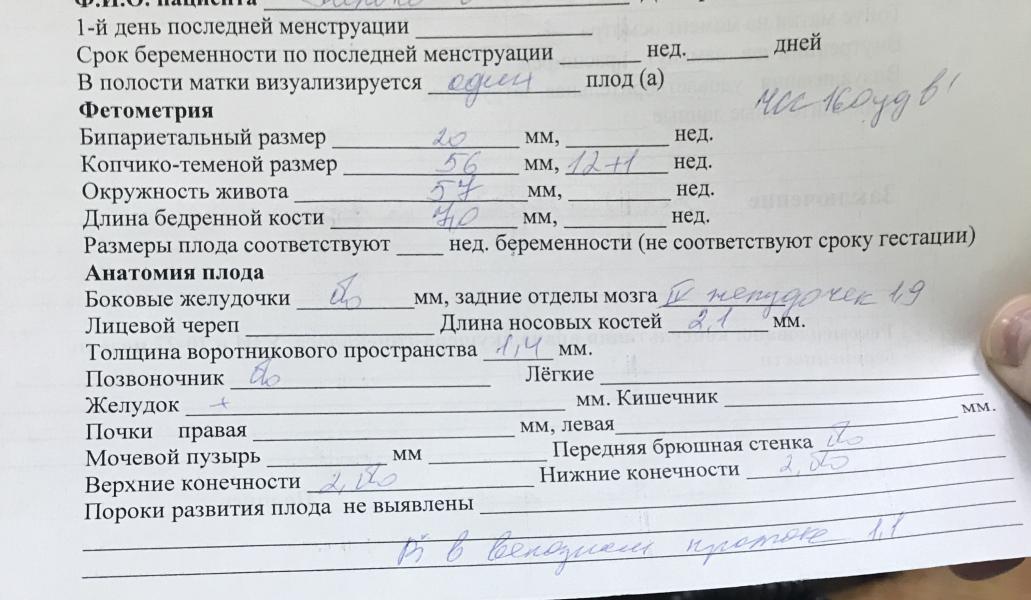 Ф.И.О. пациента
1-й день последней менструации
Срок беременности по последней менструации ______ нед. ______ дней
В полости матки визуализируется один плод (а)
ЧСС 160 уд в 1'
Фетометрия
Бипариетальный размер 20 мм, ______ нед.
Копчико-теменой размер 56 мм, 12+1 нед.
Окружность живота 57 мм, ______ нед.
Длина бедренной кости 7,0 мм, ______ нед.
Размеры плода соответствуют ____ нед. беременности (не соответствуют сроку гестации)
Анатомия плода
Боковые желудочки ______ мм, задние отделы мозга IV желудочек 1,9
Лицевой череп ______ Длина носовых костей 2,1 мм.
Толщина воротникового пространства 1,4 мм.
Позвоночник ______ Лёгкие ______
Желудок + мм. Кишечник ______
Почки правая ______ мм, левая ______ мм.
Мочевой пузырь ______ мм ______ Передняя брюшная стенка
Верхние конечности 2, ______ Нижние конечности 2,
Пороки развития плода не выявлены
в венозном протоке 1,1